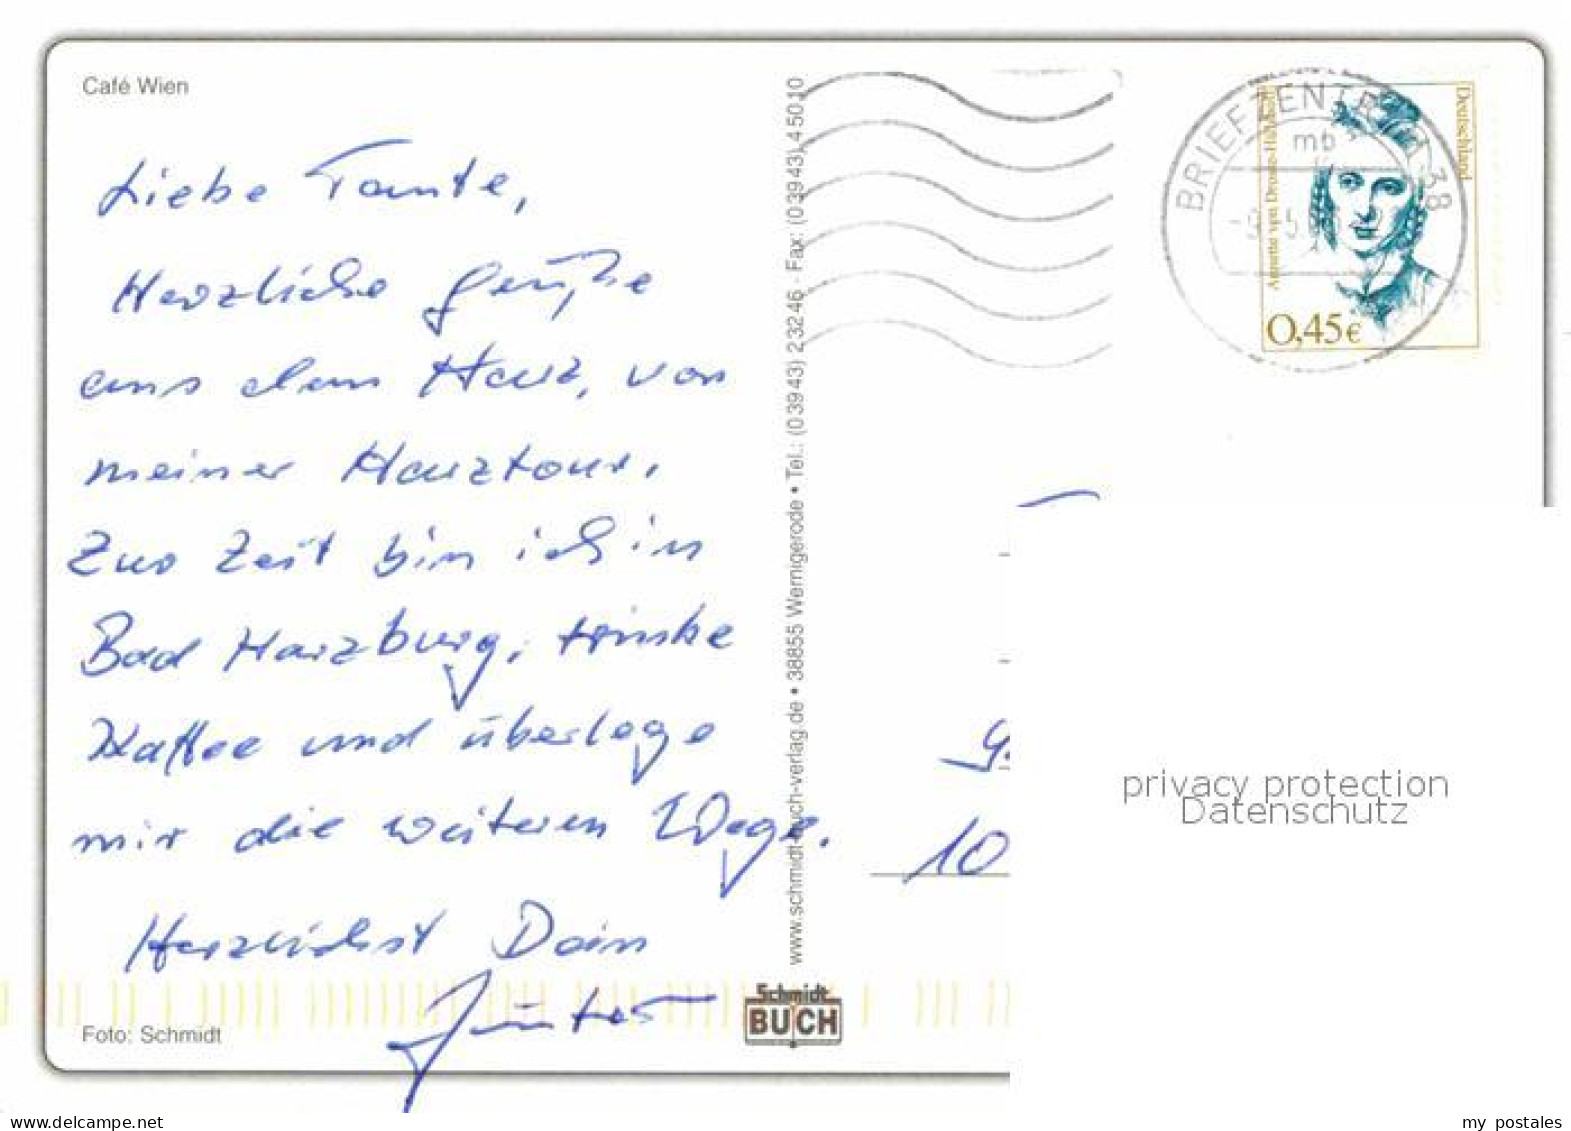 Café Wien
Liebe Tante,
Herzliche Grüße
aus dem Harz, von
meiner Harztour.
Zur Zeit bin ich in
Bad Harzburg, trinke
Kaffee und überlege
mir die weiteren Wege.
Herzlichst Dein
Günter
Foto: Schmidt
www.schmidt-buch-verlag.de • 38855 Wernigerode • Tel.: (03943) 23246 · Fax: (03943) 45010
Schmidt
BUCH
BRIEFZENTRUM 38
mb
Deutschland
Annette von Droste-Hülshoff
0,45€
10
privacy protection
Datenschutz
my postales
www.delcampe.net